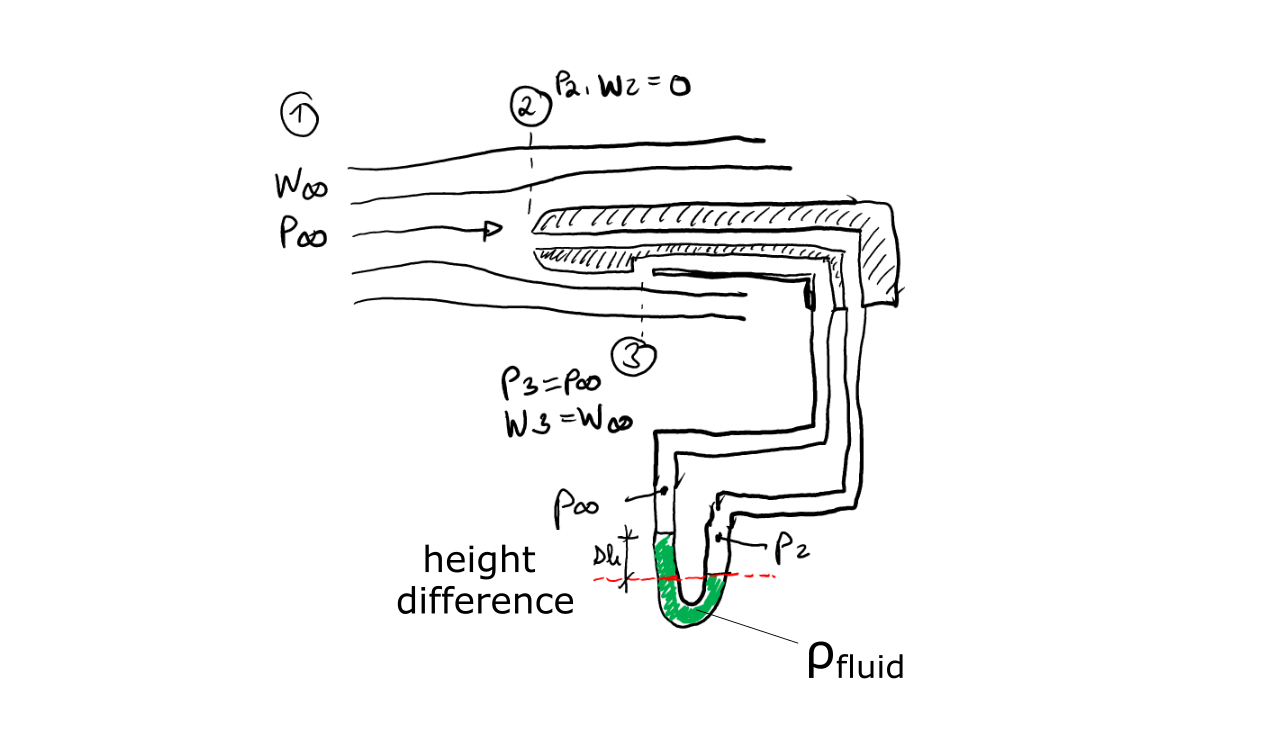 ①
② P2, W2 = 0
W∞
P∞
③
P3 = P∞
W3 = W∞
P∞
P2
Δh
height
difference
ρfluid